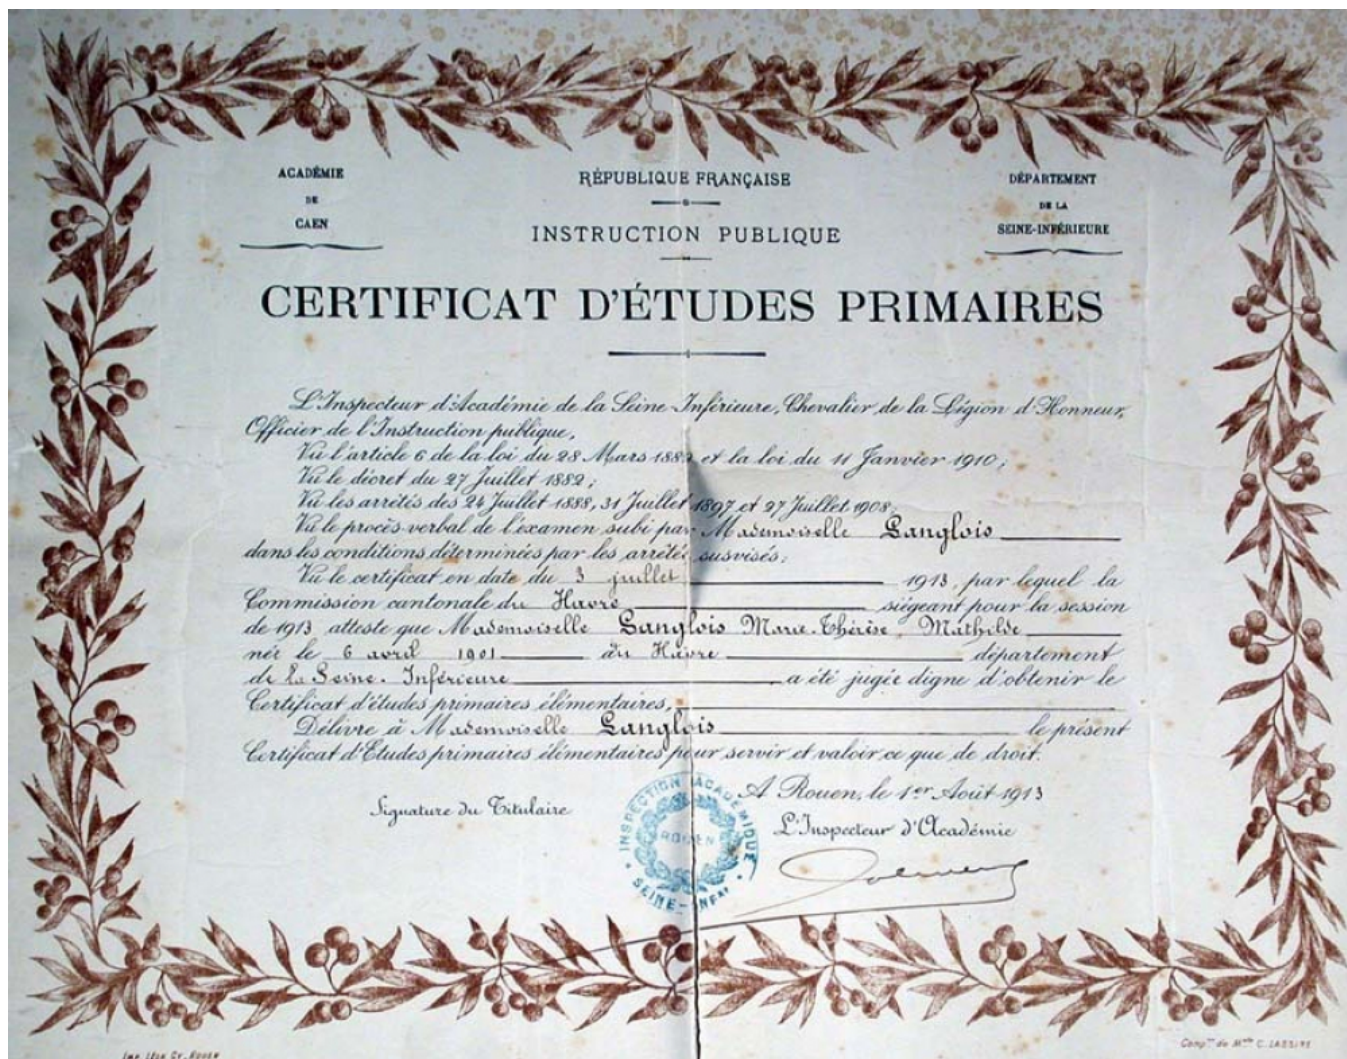 ACADÉMIE
DE
CAEN
RÉPUBLIQUE FRANÇAISE
INSTRUCTION PUBLIQUE
DÉPARTEMENT
DE LA
SEINE-INFÉRIEURE
CERTIFICAT D'ÉTUDES PRIMAIRES
L'Inspecteur d'Académie de la Seine Inférieure, Chevalier de la Légion d'Honneur,
Officier de l'Instruction publique,
Vu l'article 6 de la loi du 28 Mars 1882 et la loi du 11 Janvier 1910;
Vu le décret du 27 Juillet 1882;
Vu les arrêtés des 24 Juillet 1888, 31 Juillet 1897 et 27 Juillet 1908;
Vu le procès verbal de l'examen subi par Mademoiselle Langlois
dans les conditions déterminées par les arrêtés susvisés;
Vu le certificat en date du 3 juillet 1913, par lequel la
Commission cantonale du Havre siégeant pour la session
de 1913 atteste que Mademoiselle Langlois Marie-Thérèse, Mathilde
née le 6 avril 1901 au Havre département
de la Seine-Inférieure a été jugée digne d'obtenir le
Certificat d'études primaires élémentaires,
Délivre à Mademoiselle Langlois le présent
Certificat d'Etudes primaires élémentaires pour servir et valoir ce que de droit.
A Rouen, le 1er Août 1913
Signature du Titulaire
L'Inspecteur d'Académie
INSPECTION ACADÉMIQUE
ROUEN
SEINE-INFRE
Imp. Léon Gy. Rouen